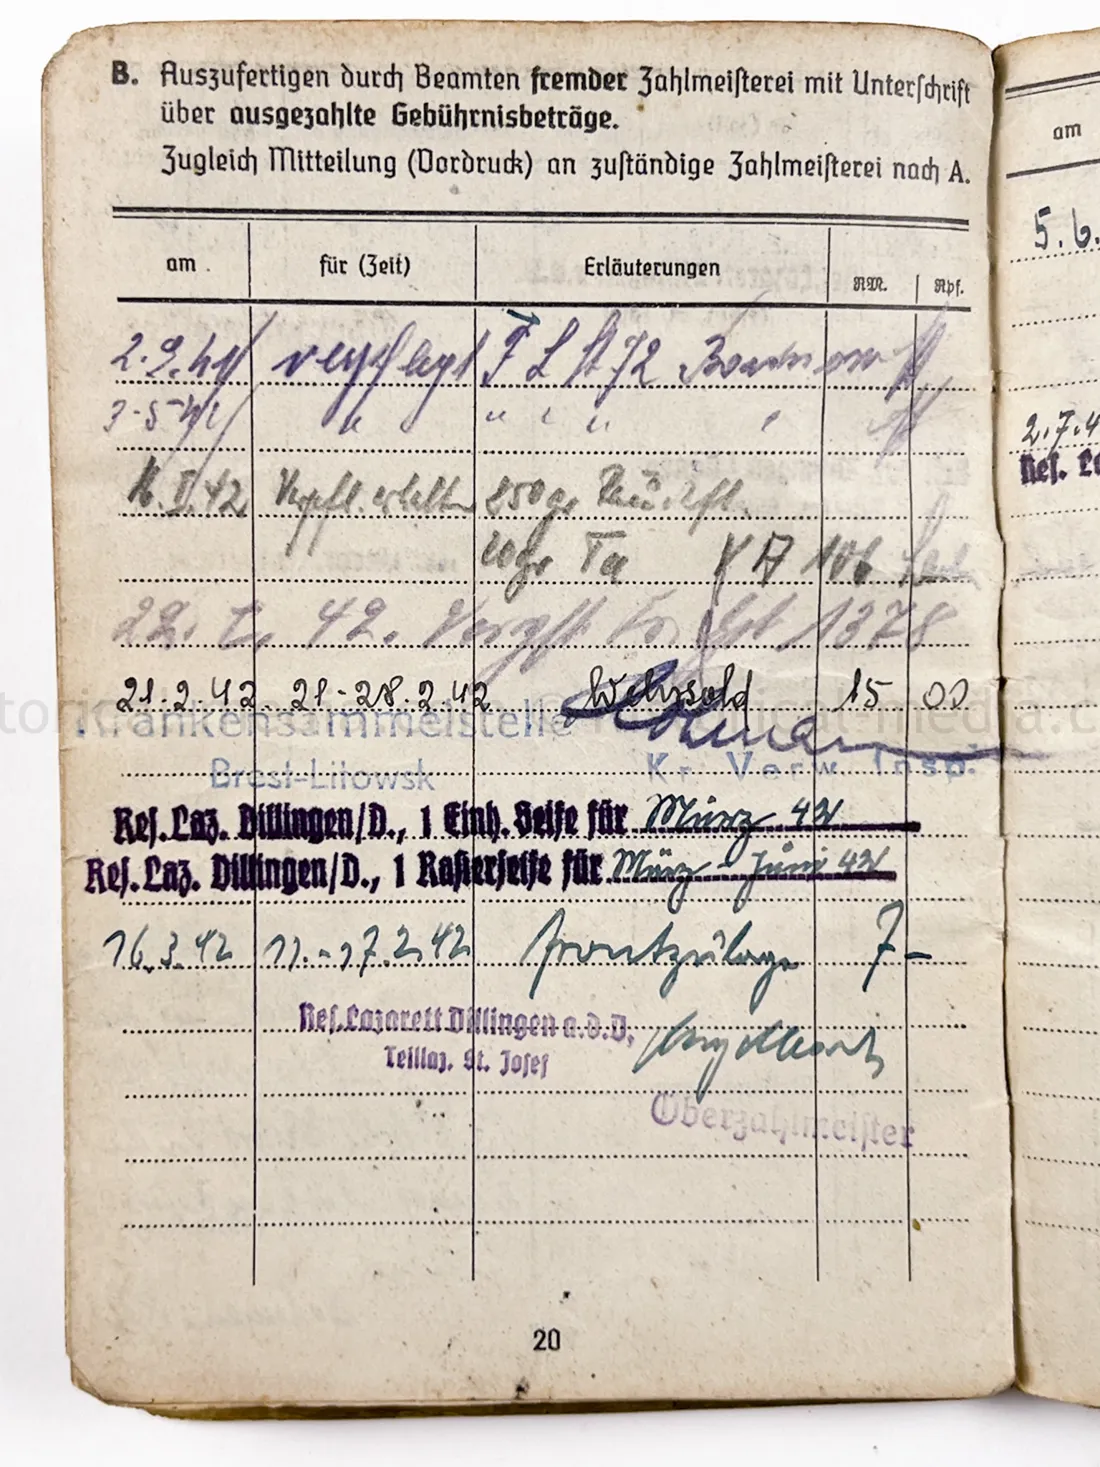 B. Auszufertigen durch Beamten fremder Zahlmeisterei mit Unterschrift
über ausgezahlte Gebührnisbeträge.
Zugleich Mitteilung (Vordruck) an zuständige Zahlmeisterei nach A.
am für (Zeit) Erläuterungen RM. Rpf.
2.9.41 verpflegt
3.5.41 " " " "
42 Verpfl. erhalten 850 gr
20 gr Tee 106
22. 2. 42. Verpfl. 1378
21.2.42. 21-28.2.42 Wehrsold 15 00
Krankensammelstelle
Brest-Litowsk Kr. Verw. Insp.
Res. Laz. Dillingen/D., 1 Einh. Seife für März 42
Res. Laz. Dillingen/D., 1 Rasierseife für März - Juni 42
16.3.42 11.-17.2.42 Frontzulage 7 -
Res. Lazarett Dillingen a.d.D.
Teillaz. St. Josef
Oberzahlmeister
20
am
5.6.
2.7.4
Res. La